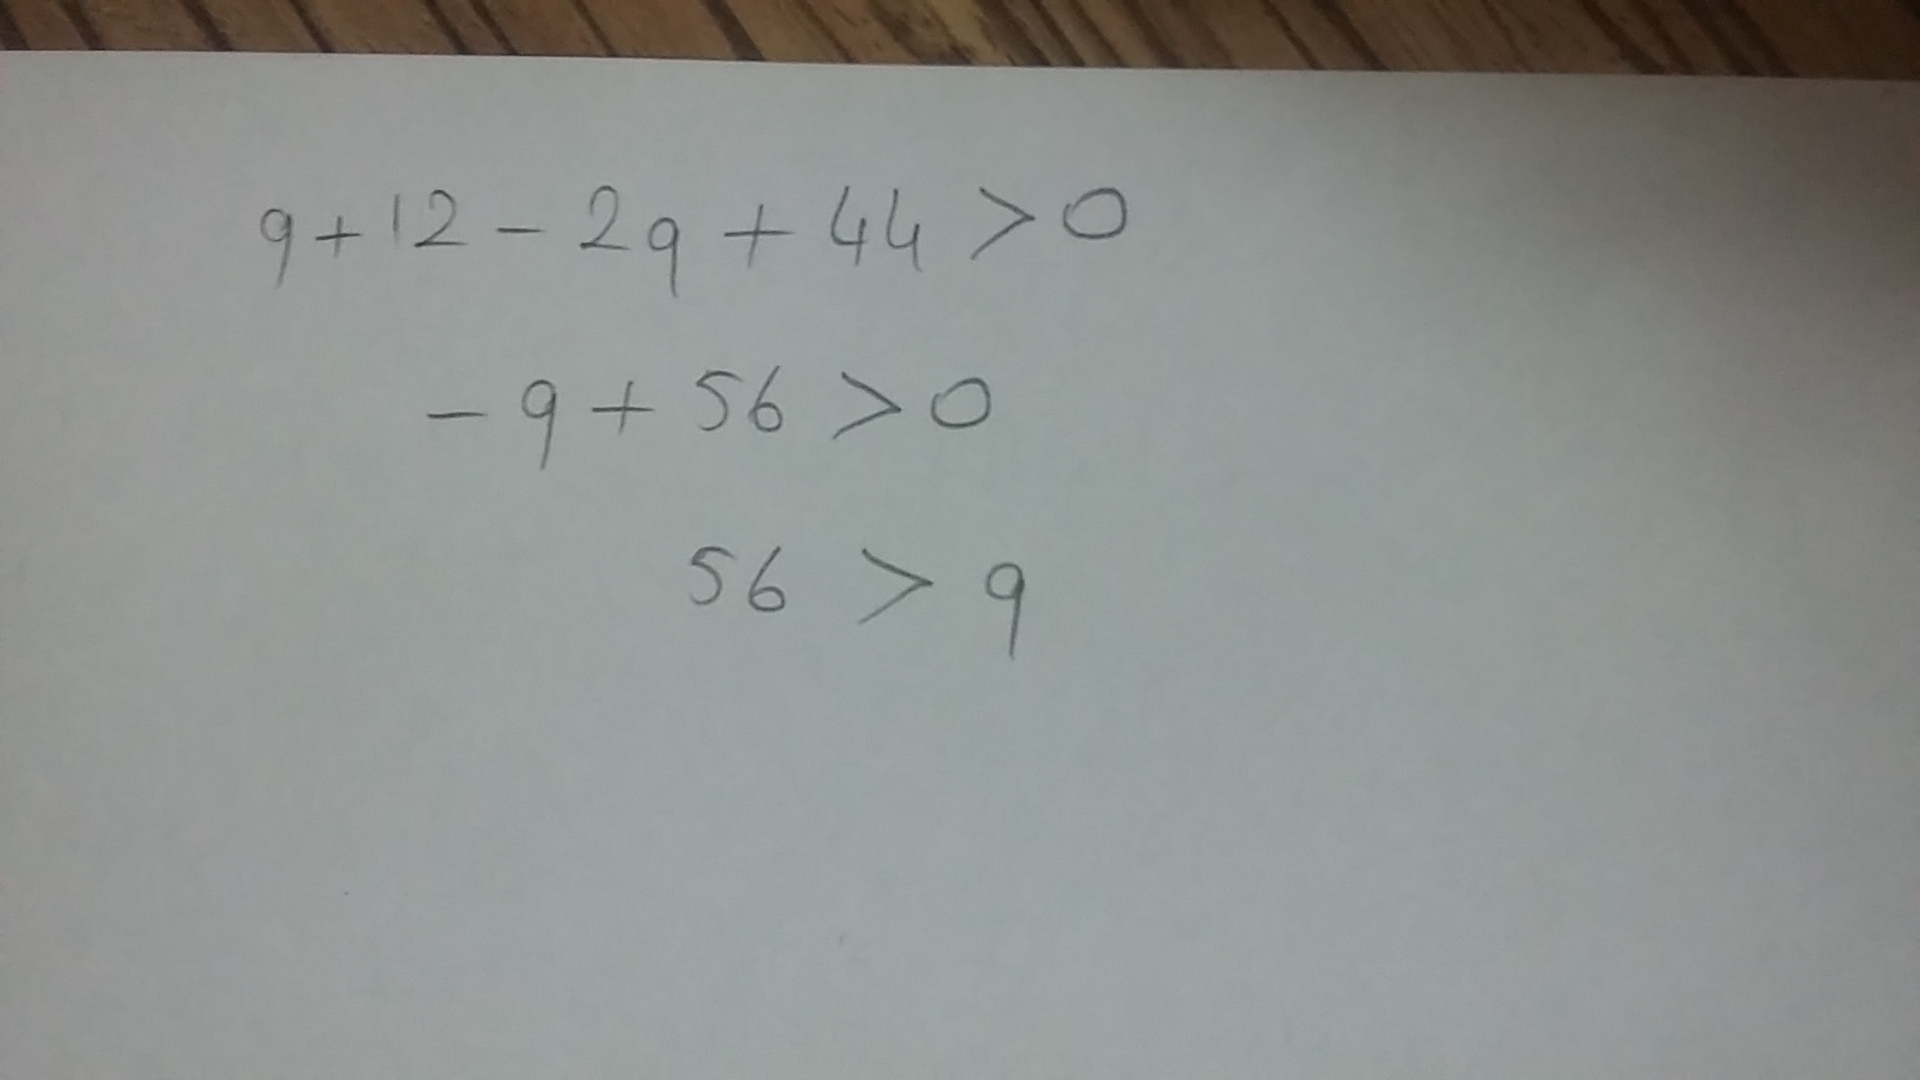 q + 12 - 2q + 44 > 0
- q + 56 > 0
56 > q